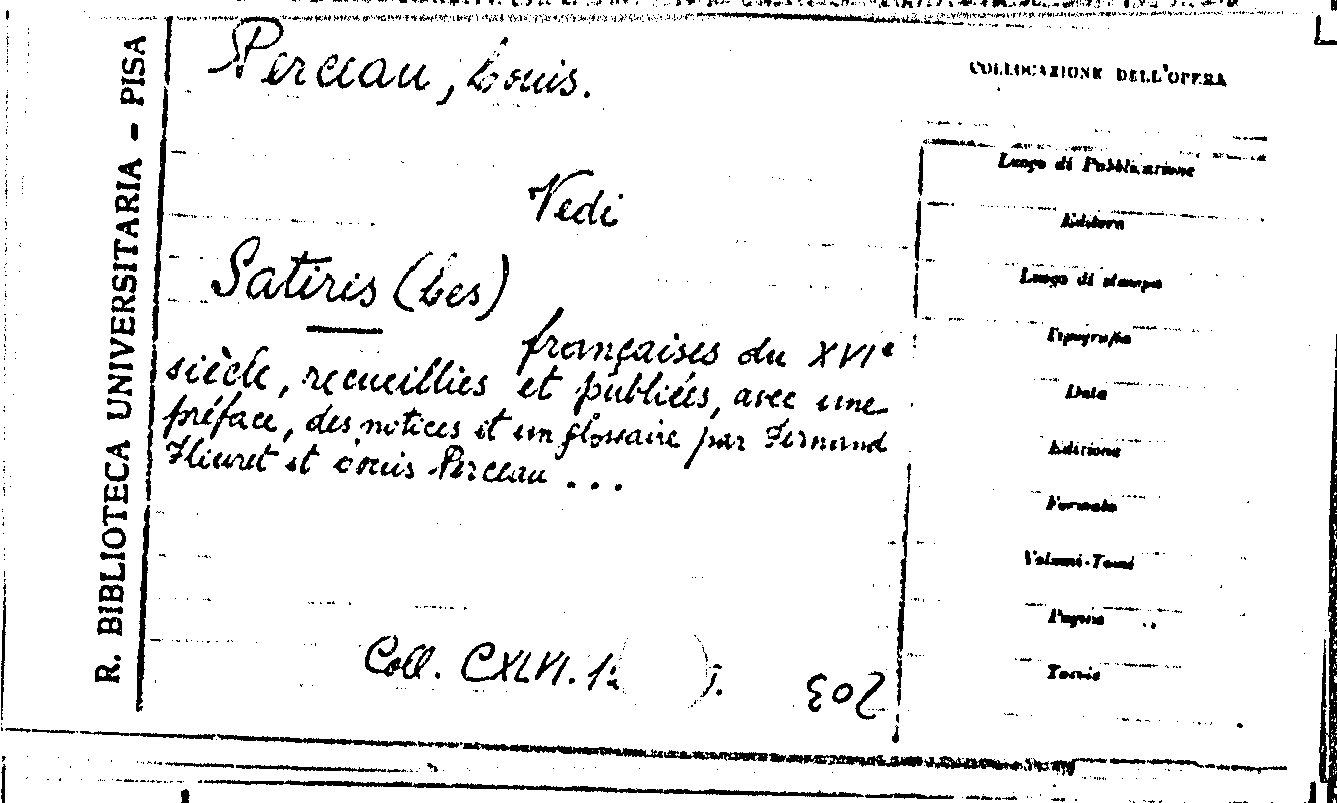 R. BIBLIOTECA UNIVERSITARIA - PISA
Perceau, Louis.
Vedi
Satires (Les)
françaises du XVIe
siècle, recueillies et publiées, avec une
préface, des notices et un glossaire par Fernand
Fleuret et Louis Perceau ...
Coll. CXLVI. 1
203
COLLOCAZIONE DELL'OPERA
Luogo di Pubblicazione
Editore
Luogo di stampa
Tipografia
Data
Edizione
Formato
Volumi-Tomi
Pagine
Tavole